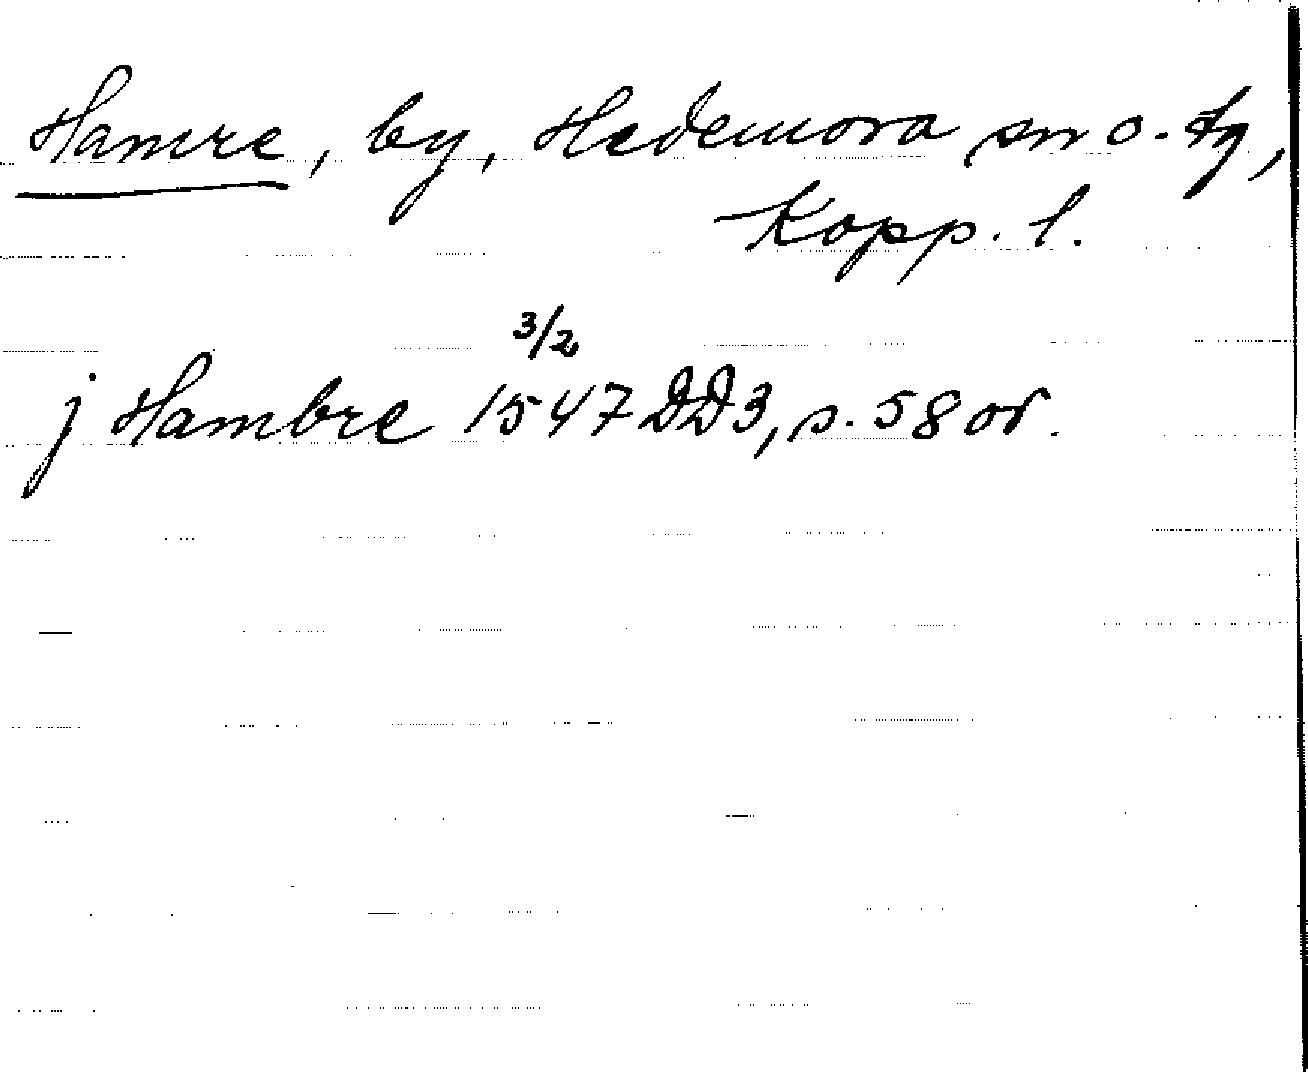 Hamre, by, Hedemora sn o. tg,
Kopp. l.
3/2
j Hambre 1547 DD3, s. 58 or.